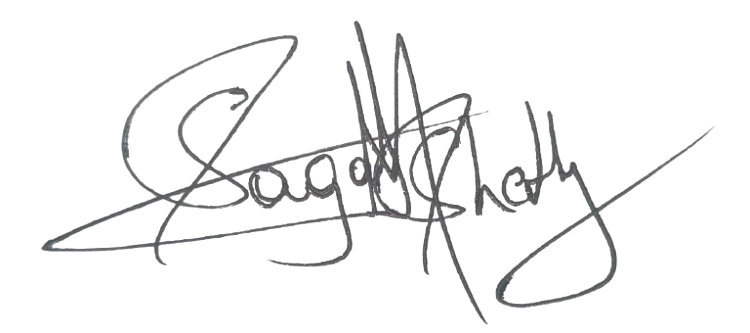 Sagar Shetty